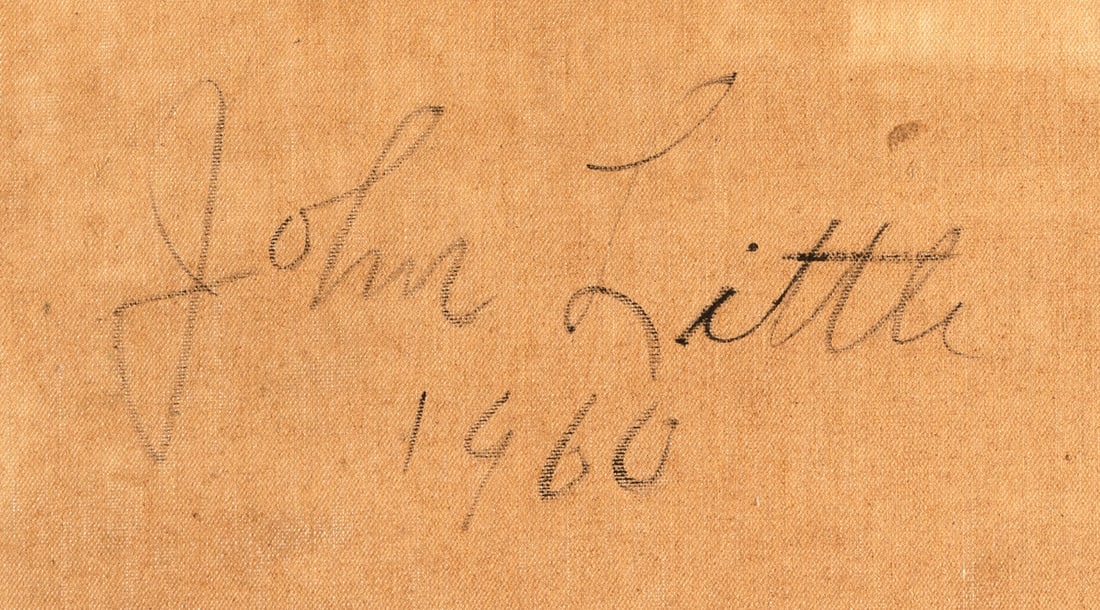 John Little
1960